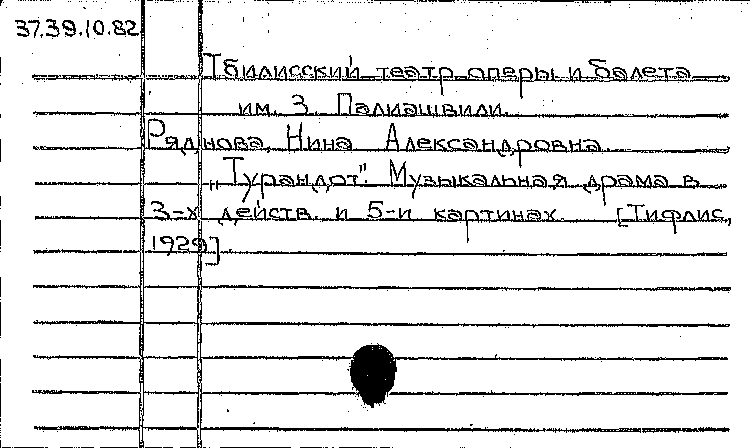 37.39.10.82
Тбилисский театр оперы и балета
им. З. Палиашвили.
Ряднова, Нина Александровна.
"Турандот". Музыкальная драма в
3-х действ. и 5-и картинах. [Тифлис,
1929]